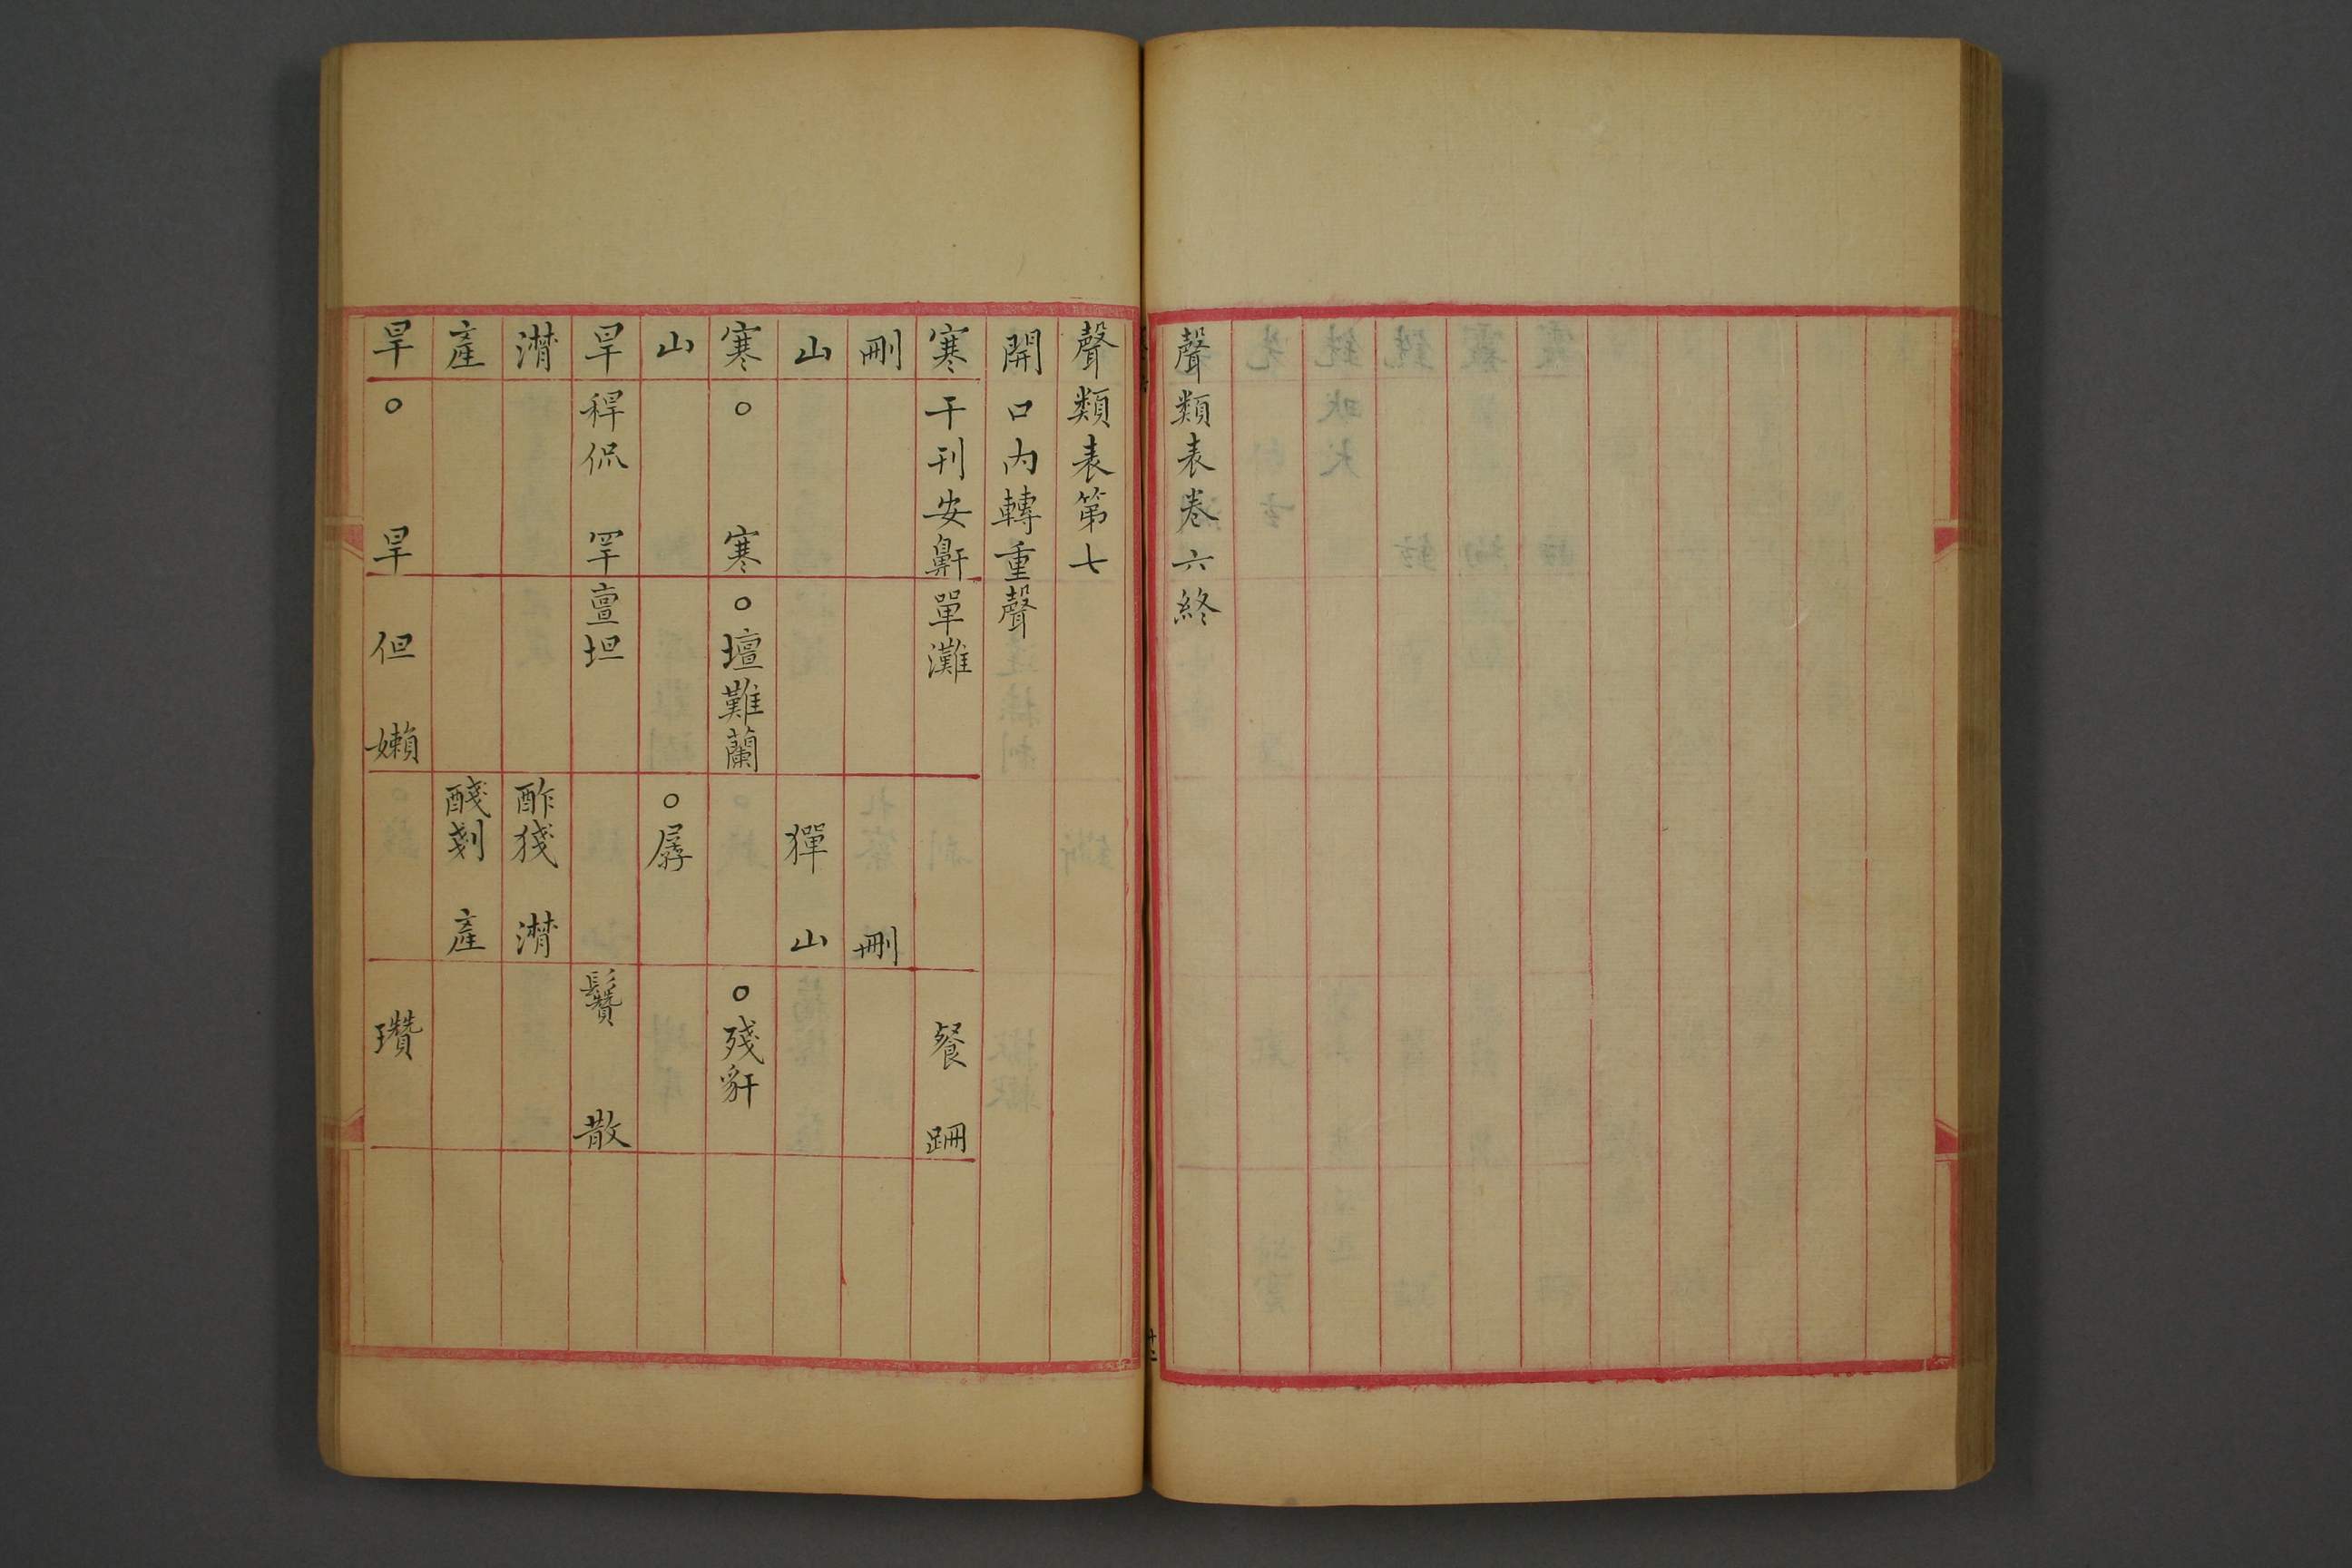 聲類表卷六終
聲類表第七
開口內轉重聲
寒 干刊安鼾 單灘 餐 跚
刪 刪
山 玂 山
寒 ○ 寒 ○壇難蘭 ○殘豻
山 ○孱
旱 稈侃 罕 亶坦 鬢 散
潸 酢㺑 潸
產 醆剗 產
旱 ○ 旱 但 嬾 瓚